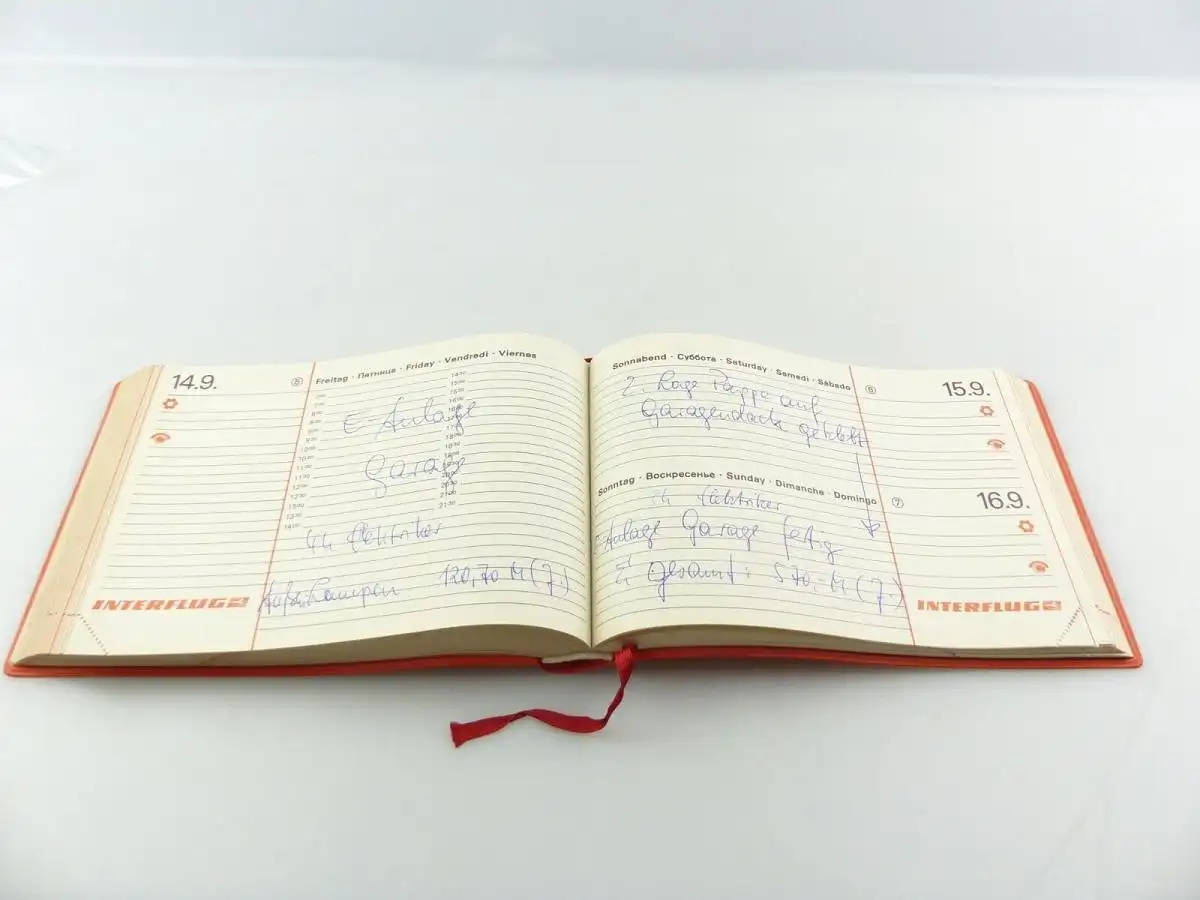 14.9.
5
Freitag · Пятница · Friday · Vendredi · Viernes
E-Anlage
Garage
4h Elektriker
120,70 M (7.)
INTERFLUG
Sonnabend · Суббота · Saturday · Samedi · Sábado
6
15.9.
2. Lage Pappe auf
Garagendach geklebt
Sonntag · Воскресенье · Sunday · Dimanche · Domingo
7
16.9.
Elektriker
Anlage Garage fertig
Gesamt: 570,- M (7.)
INTERFLUG